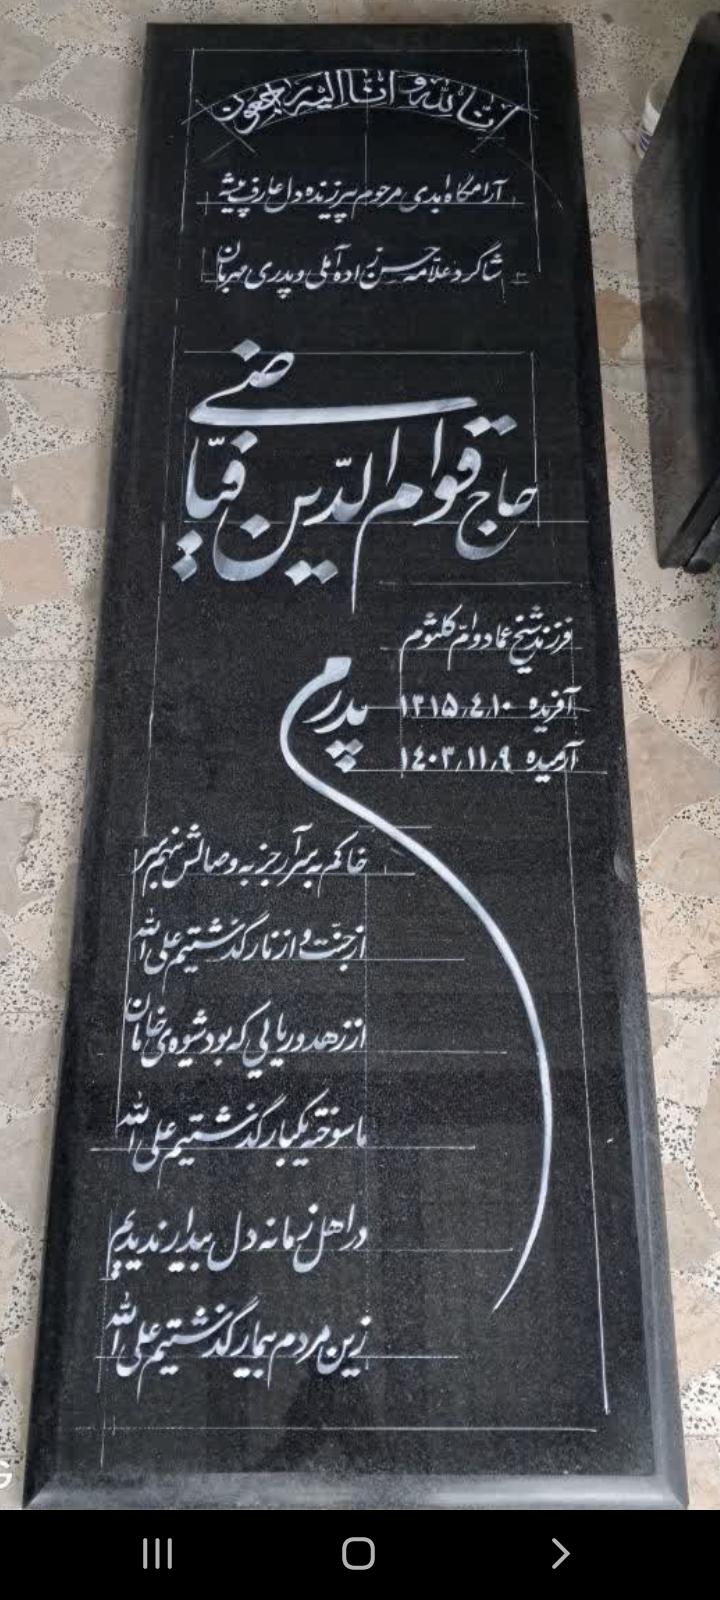 انا لله و انا الیه راجعون
آرامگاه ابدی مرحوم پیر زنده دل عارف پیشه
شاگرد علامه حسن زاده آملی و پدری مهربان
حاج قوام الدین فیاضی
فرزند شیخ عماد و ام کلثوم
آفریده ۱۳۱۵،۴،۱۰
آرمیده ۱۴۰۳،۱۱،۹
پدرم
خاکم به سر آر جز به وصالش بنهم سر
از جنت و از نار گذشتیم علی الله
از زهد و ریایی که بود شیوه ی خامان
ما سوخته یکبار گذشتیم علی الله
در اهل زمانه دل بیدار ندیدیم
زین مردم بیمار گذشتیم علی الله